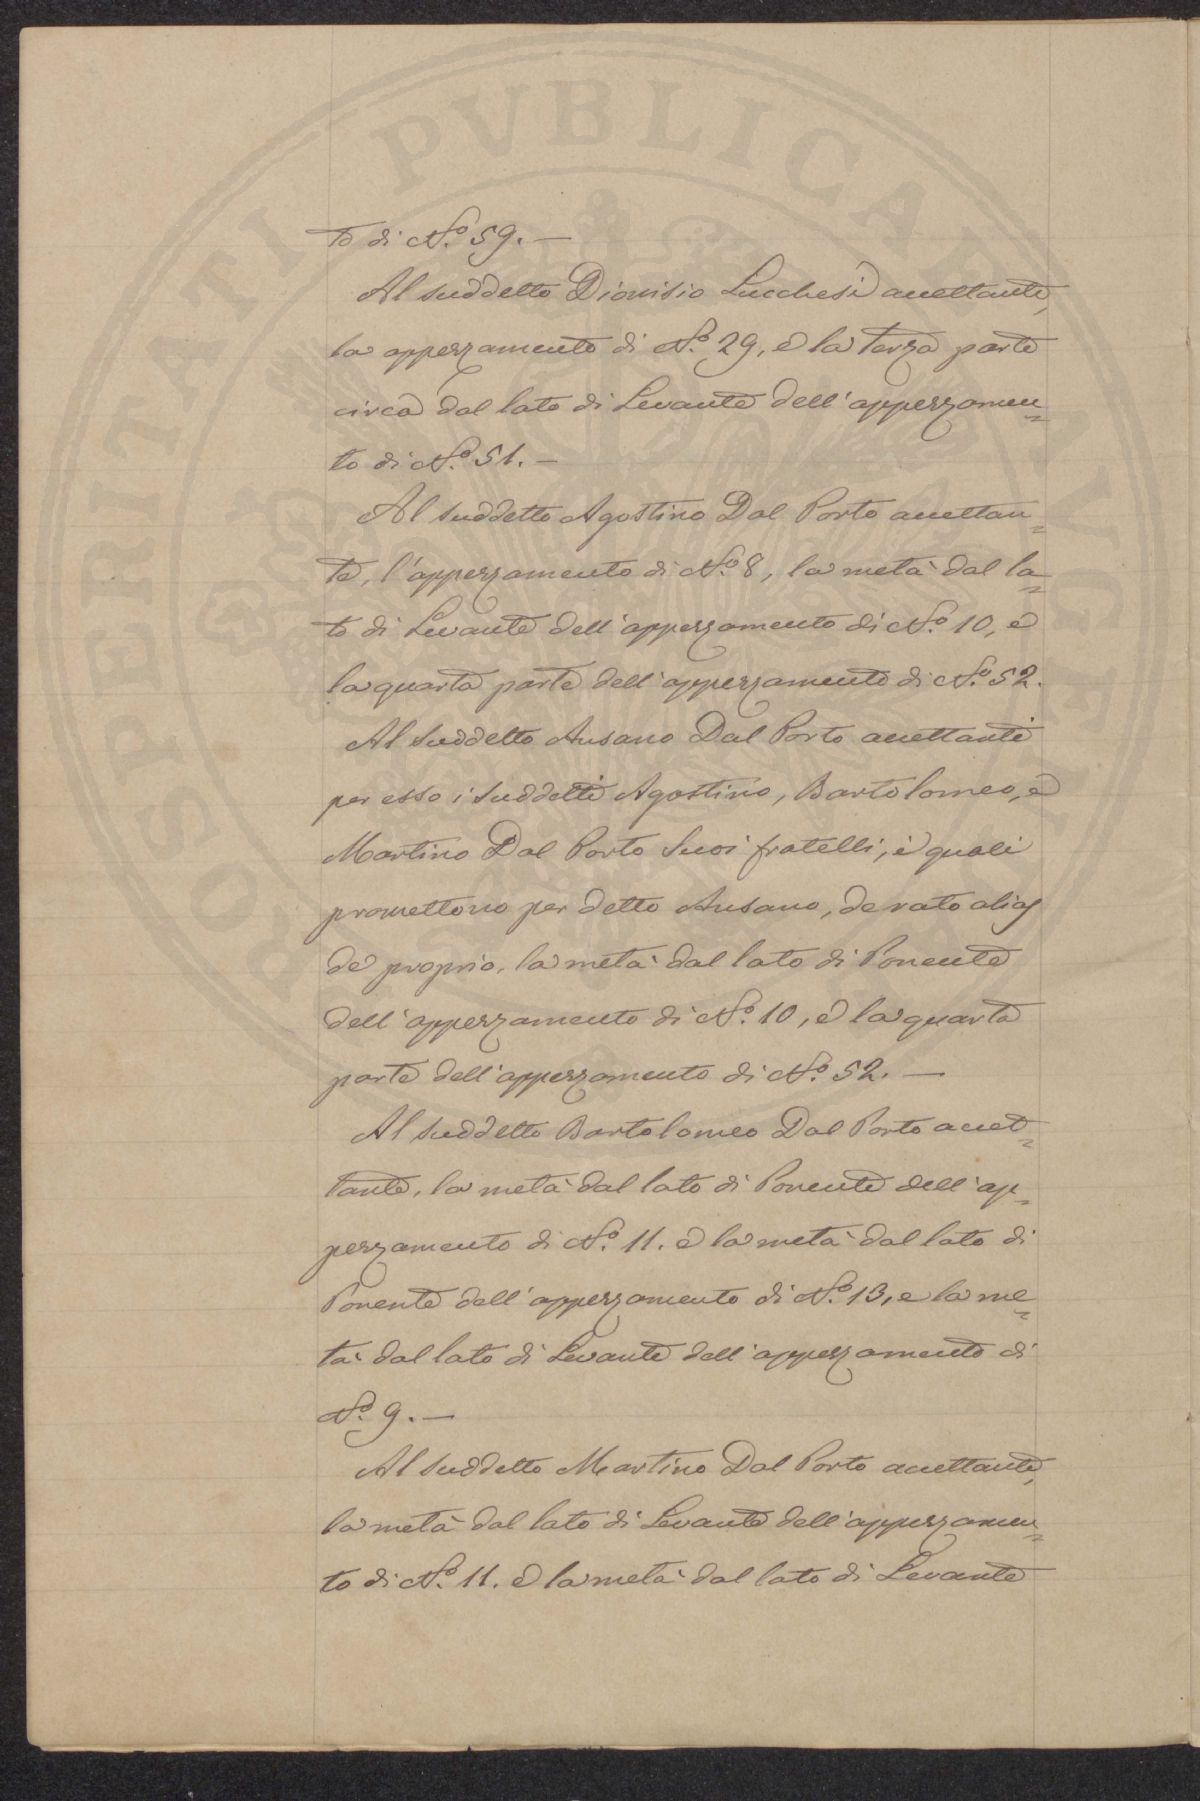 to di N.º 59. —
Al suddetto Dionisio Lucchesi accettante,
la appezzamento di N.º 29, e la terza parte
circa dal lato di Levante dell'appezzamen=
to di N.º 51. —
Al suddetto Agostino Dal Porto accettan=
te, l'appezzamento di N.º 8, la metà dal la=
to di Levante dell'appezzamento di N.º 10, e
la quarta parte dell'appezzamento di N.º 52.
Al suddetto Ansano Dal Porto accettanti
per esso i suddetti Agostino, Bartolomeo, e
Martino Dal Porto suoi fratelli, i quali
promettono per detto Ansano, de rato alias
de proprio, la metà dal lato di Ponente
dell'appezzamento di N.º 10, e la quarta
parte dell'appezzamento di N.º 52. —
Al suddetto Bartolomeo Dal Porto accet=
tante, la metà dal lato di Ponente dell'ap=
pezzamento di N.º 11. e la metà dal lato di
Ponente dell'appezzamento di N.º 13, e la me=
tà dal lato di Levante dell'appezzamento di
N.º 9. —
Al suddetto Martino Dal Porto accettante,
la metà dal lato di Levante dell'appezzamen=
to di N.º 11. e la metà dal lato di Levante
PROSPERITATI PVBLICAE AVGENDAE